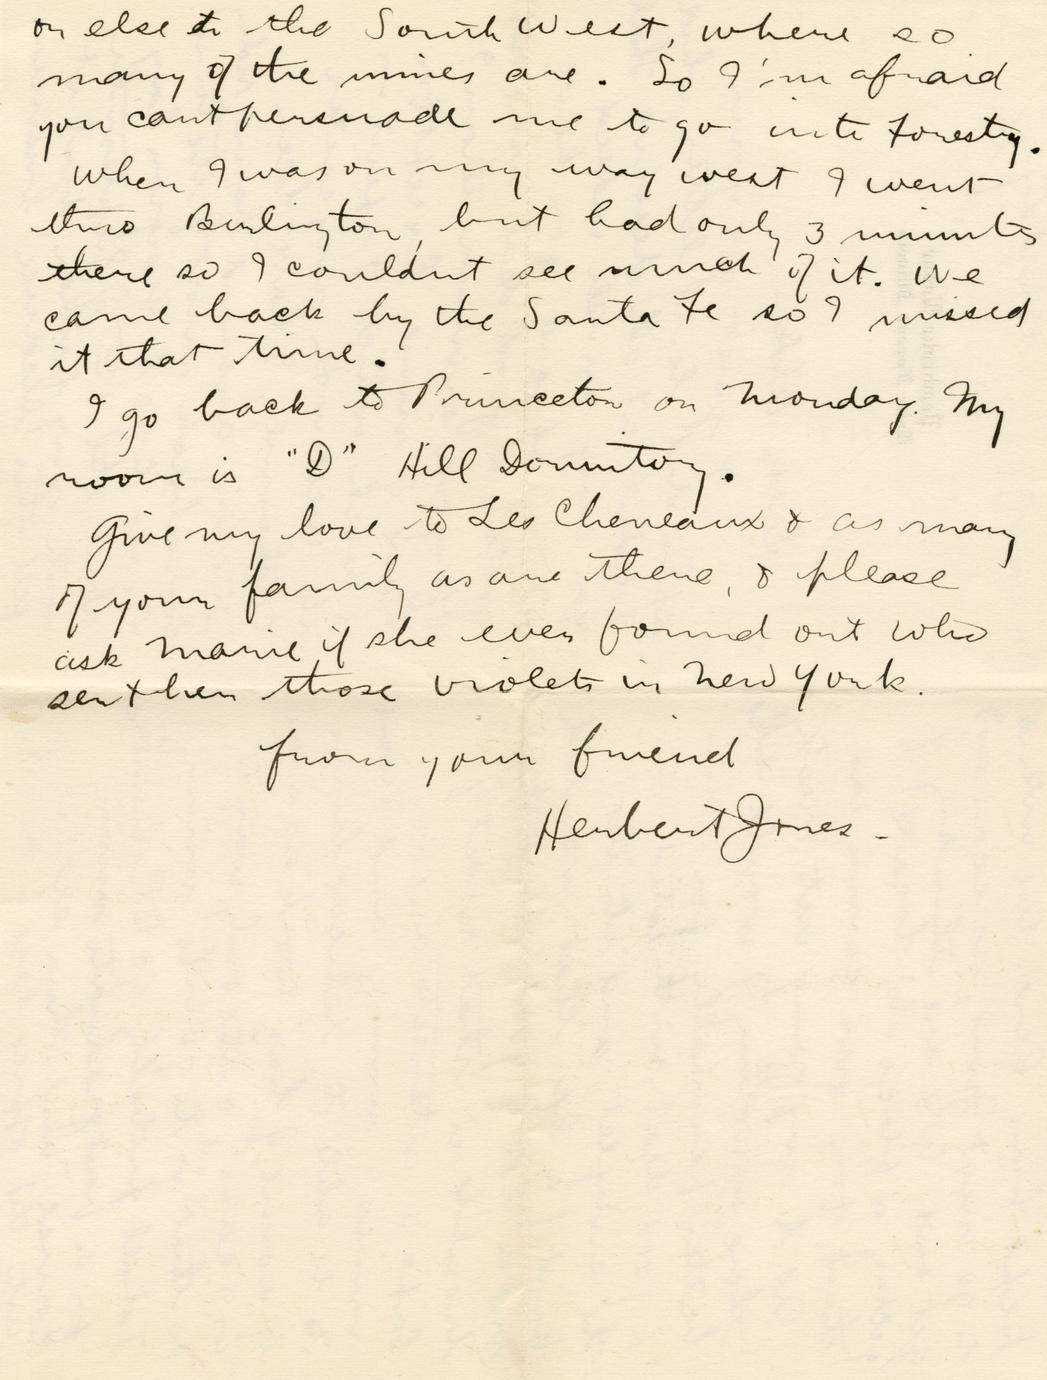 or else to the South West, where so
many of the mines are. So I'm afraid
you cant persuade me to go into Forestry.
When I was on my way west I went
thro Burlington, but had only 3 minutes
there so I couldn't see much of it. We
came back by the Santa Fe so I missed
it that time.
I go back to Princeton on Monday. My
room is "D" Hill Dormitory.
Give my love to Les Cheneaux & as many
of your family as are there, & please
ask Mamie if she ever found out who
sent her those violets in New York.
from your friend
Herbert Jones.